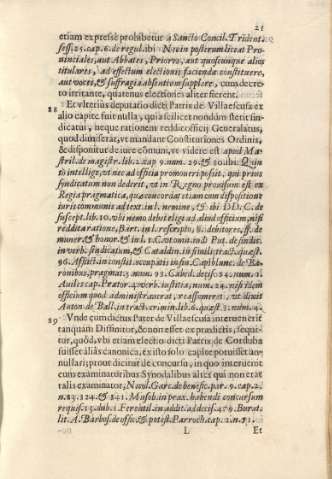 21
etiam expressè prohibetur à Sancto Concil. Trident.
sess. 25. cap. 6. de regul. ibi: Ne in posterum liceat Pro-
uinciales, aut Abbates, Priores, aut quoscunque alios
titulares, ad effectum electionis faciendæ constituere,
aut voces, & suffragia absentium supplere, cum decre-
to irritante, quatenus electiones aliter fierent.
28 Et vlterius deputatio dicti Patris de Villaescusa ex
alio capite fuit nulla, quia scilicet nondum stetit sin-
dicatui, neque rationem reddit officij Generalatus,
quod dimiserat, vt mandant Constitutiones Ordinis,
& disponitur de iure communi, vt videre est apud Mas-
tril. de magistr. lib. 2. cap. 9. num. 29. & 30. ibi: Quin-
to intellige, vt nec ad officia promoueri possit, qui prius
sindicatum non dederit, vt in Regno prouisum est ex
Regia pragmatica, quæ concordat etiam cum dispositione
iuris communis ad text. in l. nemine, & ibi DD. C. de
suscept. lib. 10. vbi nemo debet eligi ad aliud officium, nisi
reddita ratione, Bart. in l. rescripto, 8. debitores, ff. de
muner. & honor. & in l. 1. C. 
in verb. sindicatum, & Cataldin. in simili tract. quæst.
96. Afflict. in constit. occupatis in fin. Capiblanc. de Ba-
ronibus, pragmat. 9. num. 93. Gabed. decis. 24. num. 2.
Auiles cap. Prætor. 4. verb. iustitia, num. 24. nisi idem
officium quod administrauerat, reassumeret, vt dixit
Anton. de Ball. in tract. crimin. lib. 6. quæst. 3. num. 4.
29 Vnde cum dictus Pater de Villaescusa interuenerit
tanquam Diffinitor, & non esset ex prædictis, sequi-
tur, quòd, vbi etiam electio dicti Patris de Corduba
fuisset aliàs canonica, ex isto solo capite potuisset an-
nullari; prout dicitur de concursu, in quo interuenit
cum examinatoribus Synodalibus alius qui non erat
talis examinator, Naual. Gare. de benefic. par. 9. cap. 2.
n. 23. 124. & 141. 
requis. 15. dub. 1. Farentil. in addit. ad decis. 479. Burat.
lit. A. Barbos. de offic. & potest. Parroch. cap. 2. n. 71.
L Et